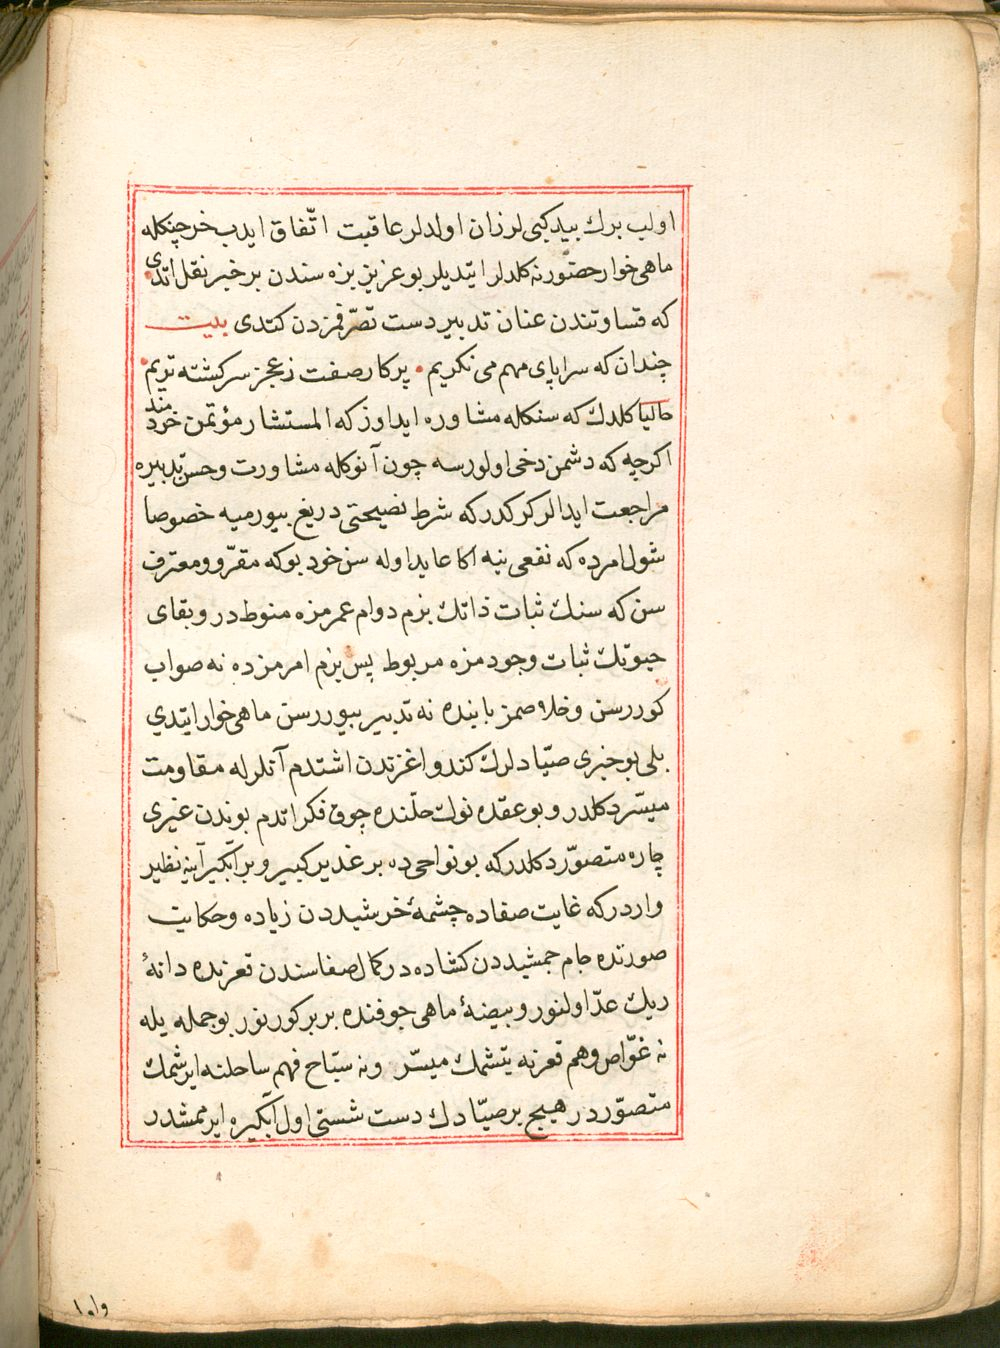 اولب برك بيد كبى لرزان اولدلر عاقبت اتّفاق ايدب خرچنكله
ماهى خوار حضورنه كلدلر ايتديلر بو عزيز بزه سندن بر خبر نقل اتدى
كه قساوتندن عنان تدبير دست تصرّفمزدن كتدى بيت
چندان كه سراپاى مهم مى نكريم • پركار صفت ز عجز سركشته تريم •
حاليا كلدك كه سنكله مشاوره ايداوز كه المستشار مؤتمن خردمند
اكرچه كه دشمن دخى اولورسه چون آنوكله مشاورت و حسن تدبيره
مراجعت ايدالر كركدر كه شرط نصيحتى دريغ بيورميه خصوصا
شول امرده كه نفعى ينه اكا عايد اوله سن خود بوكه مقرّ و معترف
سن كه سنك ثبات ذاتك بزم دوام عمرمزه منوطدر و بقاى
حيوتك ثبات وجودمزه مربوط پس بزم امرمزده نه صواب
كوررسن و خلاصمز بابنده نه تدبير بيوررسن ماهى خوار ايتدى
بلى بو خبرى صيّادلرك كندو اغزندن اشتدم آنلرله مقاومت
ميسّر دكلدر و بو عقده نوك حلّنده چوق فكر اتدم بوندن غيرى
چاره متصوّر دكلدر كه بو نواحى ده بر غدير كبير و بر آبكير آينه نظير
واردر كه غايت صفاده چشمۀ خرشيددن زياده و حكايت
صورتده جام جمشيددن كشاده در كمال صفاسندن قعرنده دانۀ
ريك عدّ اولنور و بيضۀ ماهى جوفنده بربر كورنور بو جمله يله
نه غوّاص وهم قعرنه يتشمك ميسّر و نه سيّاح فهم ساحلنه ايرشمك
متصوّردر هيچ بر صيّادك دست شستى اول آبكيره ايرممشدر
واول